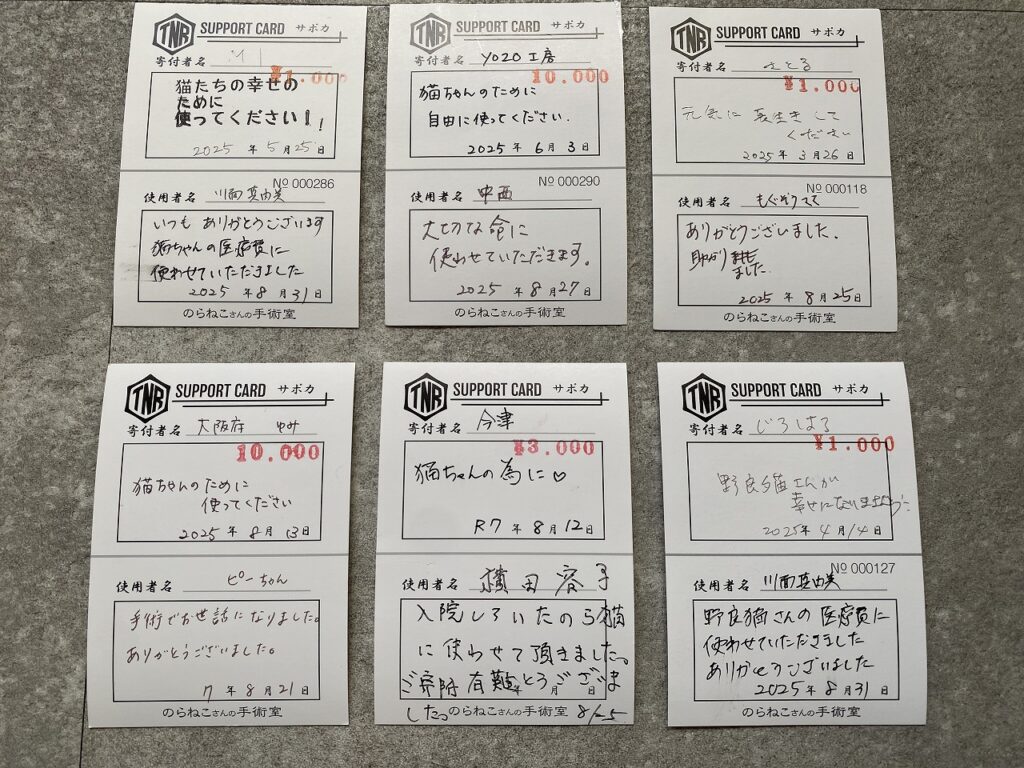 TNR SUPPORT CARD サポカ
寄付者名
¥1.000
猫たちの幸せの
ために
使ってください!!
2025年5月25日
№ 000286
使用者名 川面真由美
いつもありがとうございます
猫ちゃんの医療費に
使わせていただきました
2025年8月31日
のらねこさんの手術室
TNR SUPPORT CARD サポカ
寄付者名 YOZO工房
10.000
猫ちゃんのために
自由に使ってください.
2025年6月3日
№ 000290
使用者名 中西
大切な命に
使わせていただきます。
2025年8月27日
のらねこさんの手術室
TNR SUPPORT CARD サポカ
寄付者名 さとる
¥1.000
元気に長生きして
ください
2025年3月26日
№ 000118
使用者名
ありがとうございました.
助かり
ました.
2025年8月25日
のらねこさんの手術室
TNR SUPPORT CARD サポカ
寄付者名 大阪府 ゆみ
10.000
猫ちゃんのために
使ってください
2025年8月13日
使用者名 ピーちゃん
手術でお世話になりました。
ありがとうございました。
7年8月21日
のらねこさんの手術室
TNR SUPPORT CARD サポカ
寄付者名 今津
¥3.000
猫ちゃんの為に♡
R7年8月12日
使用者名 横田容子
入院していたのら猫
に使わせて頂きました。
ご寄附有難とうございま
した
年 月 日
のらねこさんの手術室
TNR SUPPORT CARD サポカ
寄付者名 じろはる
¥1.000
野良猫さんが
幸せになりますように
2025年4月14日
№ 000127
使用者名 川面真由美
野良猫さんの医療費に
使わせていただきました
ありがとうございました
2025年8月31日
のらねこさんの手術室